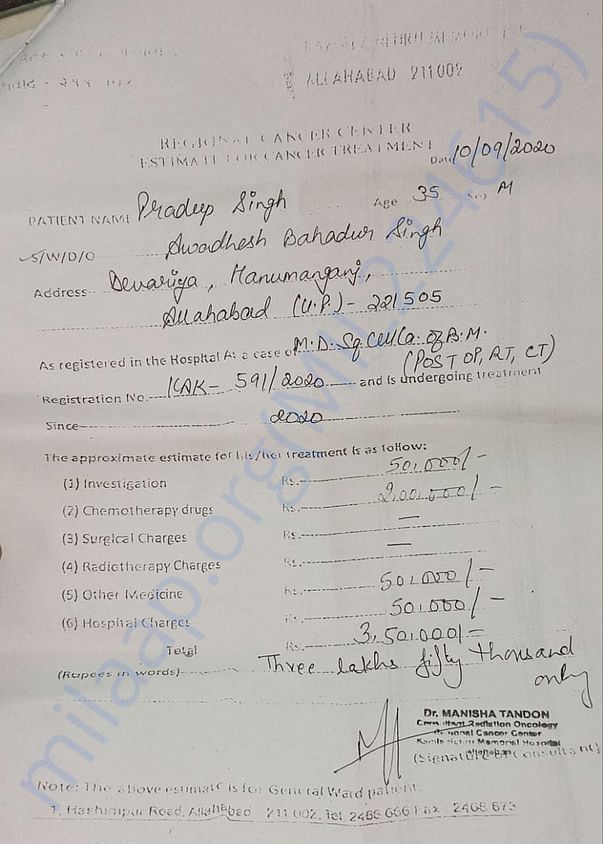 ALLAHABAD 211002
REGIONAL CANCER CENTER
ESTIMATE FOR CANCER TREATMENT
Date 10/09/2020
PATIENT NAME Pradeep Singh Age 35 Sex M
S/W/D/O Awadhesh Bahadur Singh
Address Devariya, Hanumanganj,
Allahabad (U.P.)- 221505
As registered in the Hospital As a case of M.D. Sq. Cell Ca. of B.M.
(POST OP, RT, CT)
Registration No. KAK- 591/2020 and is undergoing treatment
Since 2020
The approximate estimate for his/her treatment is as follow:
(1) Investigation Rs. 50,000/-
(2) Chemotherapy drugs Rs. 2,00,000/-
(3) Surgical Charges Rs. —
(4) Radiotherapy Charges Rs. —
(5) Other Medicine Rs. 50,000/-
(6) Hospital Charges 50,000/-
Total Rs. 3,50,000/=
(Rupees in words) Three lakhs fifty thousand
only
Dr. MANISHA TANDON
Consultant Radiation Oncology
Regional Cancer Center
Kamla Nehru Memorial Hospital
Allahabad
(Signature of Consultant)
Note: The above estimate is for General Ward patient.
1, Hashimpur Road, Allahabad 211 002, Tel. 2466 666 Fax 2466 673
milaap.org(MIL224615)